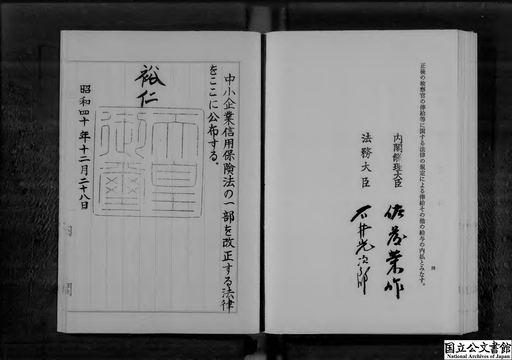 正後の検察官の俸給等に関する法律の規定による俸給その他の給与の内払とみなす。
内閣総理大臣 佐藤榮作
法務大臣 石井光次郎
中小企業信用保険法の一部を改正する法律
をここに公布する。
裕仁
天皇
御璽
昭和四十年十二月二十八日
国立公文書館
National Archives of Japan